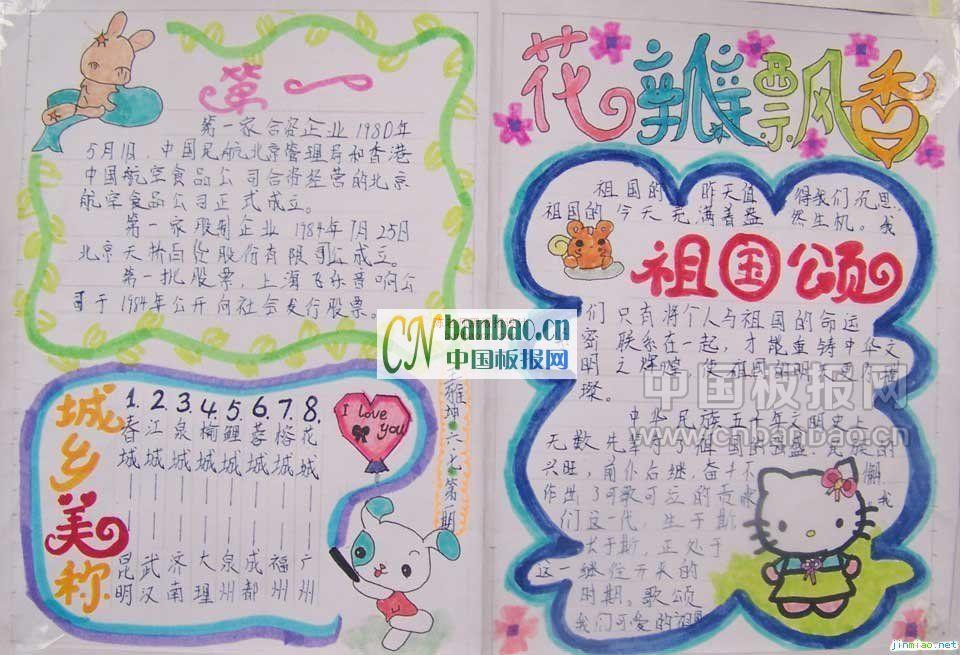 第一
第一家合资企业1980年
5月1日，中国民航北京管理局和香港
中国航空食品公司合资经营的北京
航空食品公司正式成立。
第一家股制企业1984年7月25日
北京天桥百货股份有限公司成立。
第一批股票，上海飞乐音响公
司于1984年公开向社会发行股票。
城乡美称
1. 2. 3. 4. 5. 6. 7. 8.
春城——昆明
江城——武汉
泉城——济南
榆城——大理
鲤城——泉州
蓉城——成都
榕城——福州
花城——广州
I love you
雍坤 六 第一期
花瓣飘香
祖国的 昨天值 得我们沉思
祖国的 今天充满着盎 然生机。我
祖国颂
们 只有将个人与祖国的命运
密 联系在一起，才能重铸中华文
明之辉煌 使祖国的明天更加璀
璨。
中华民族五千年文明史上
无数先辈为了祖国的 民族的
兴旺，前仆后继，奋斗不 懈
作出了可歌可泣的贡献 。我
们这一代，生于斯
长于斯，正处于
这一继往开来的
时期，歌颂
我们可爱的祖国
CNbanbao.cn
中国板报网
中国板报网
www.cnbanbao.cn
jinmiao.net